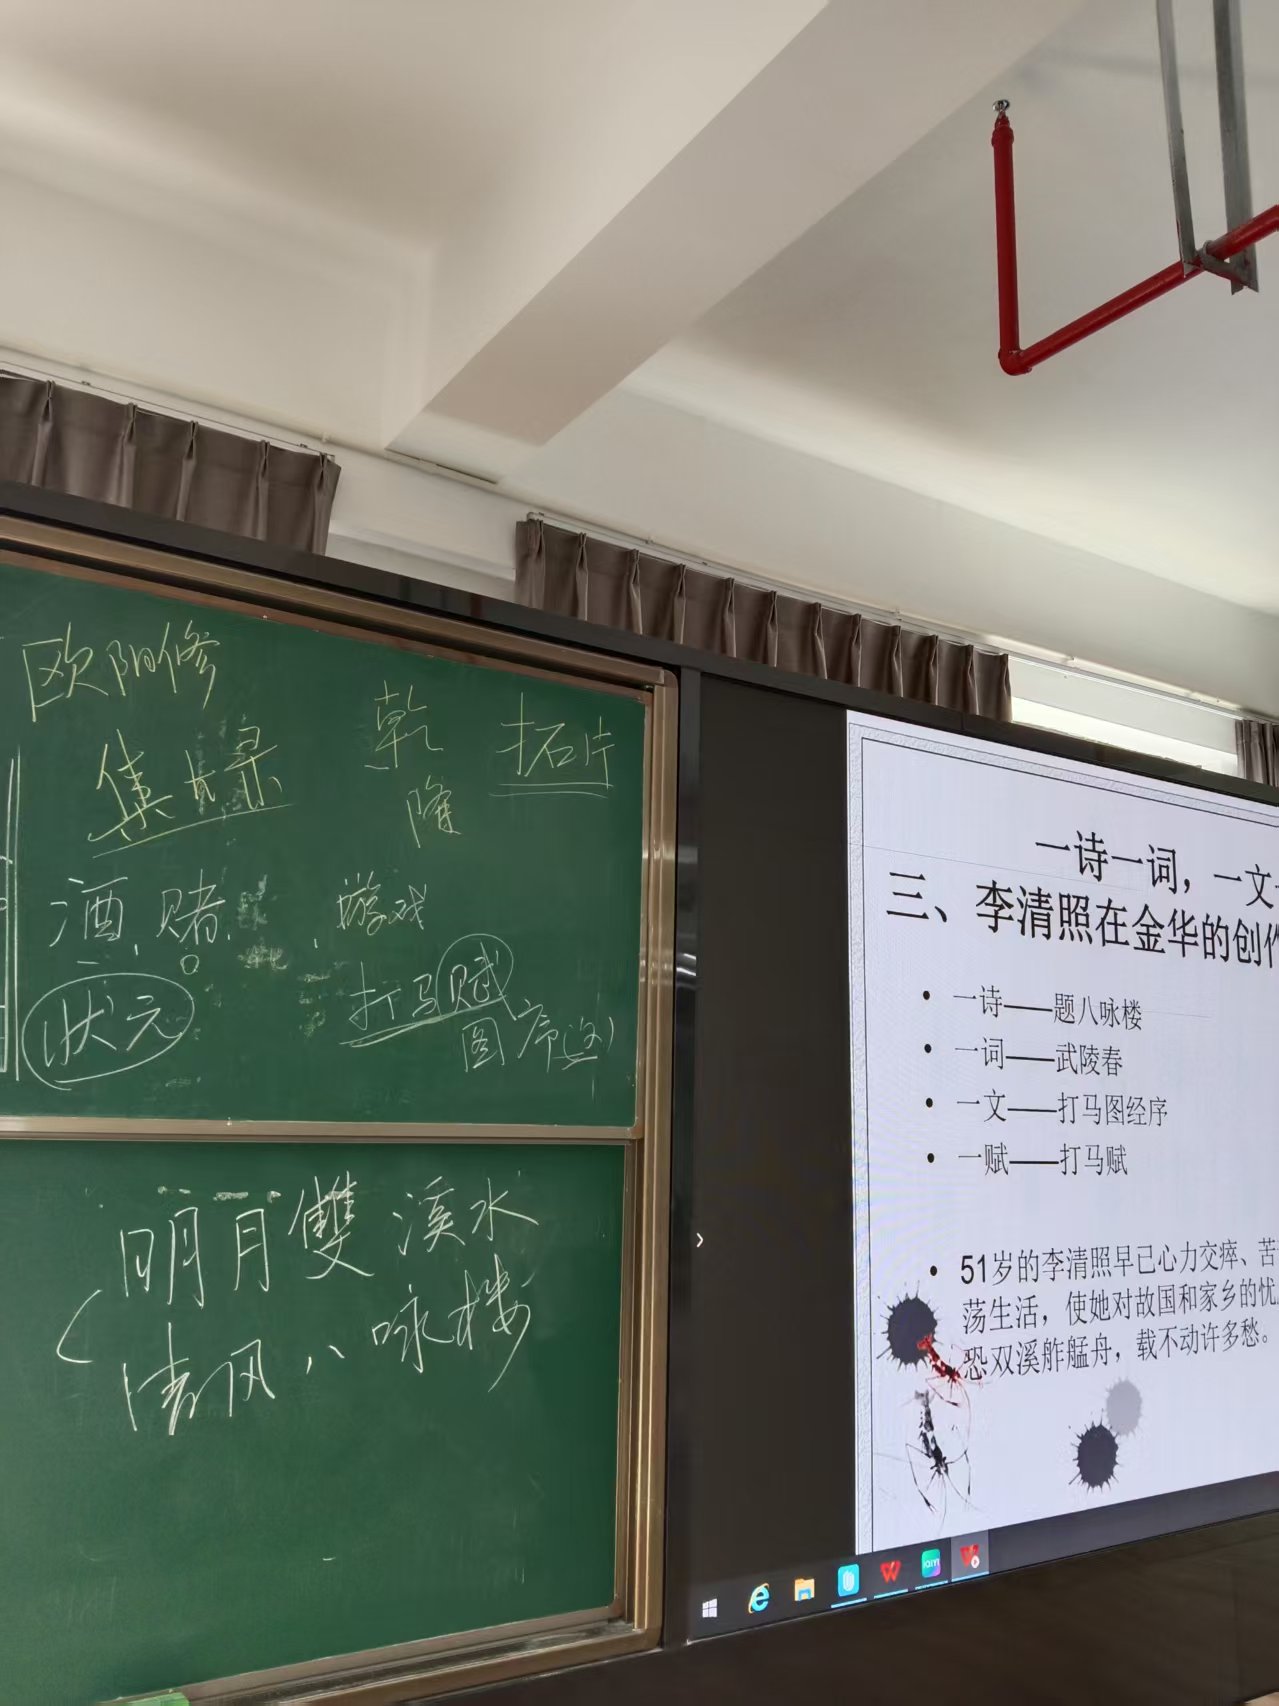 欧阳修
集古录
乾隆
拓片
酒、赌、游戏
状元
打马赋
图序
明月雙溪水
清风八咏楼
一诗一词，一文
三、李清照在金华的创作
一诗——题八咏楼
一词——武陵春
一文——打马图经序
一赋——打马赋
51岁的李清照早已心力交瘁、苦
荡生活，使她对故国和家乡的忧
恐双溪舴艋舟，载不动许多愁。